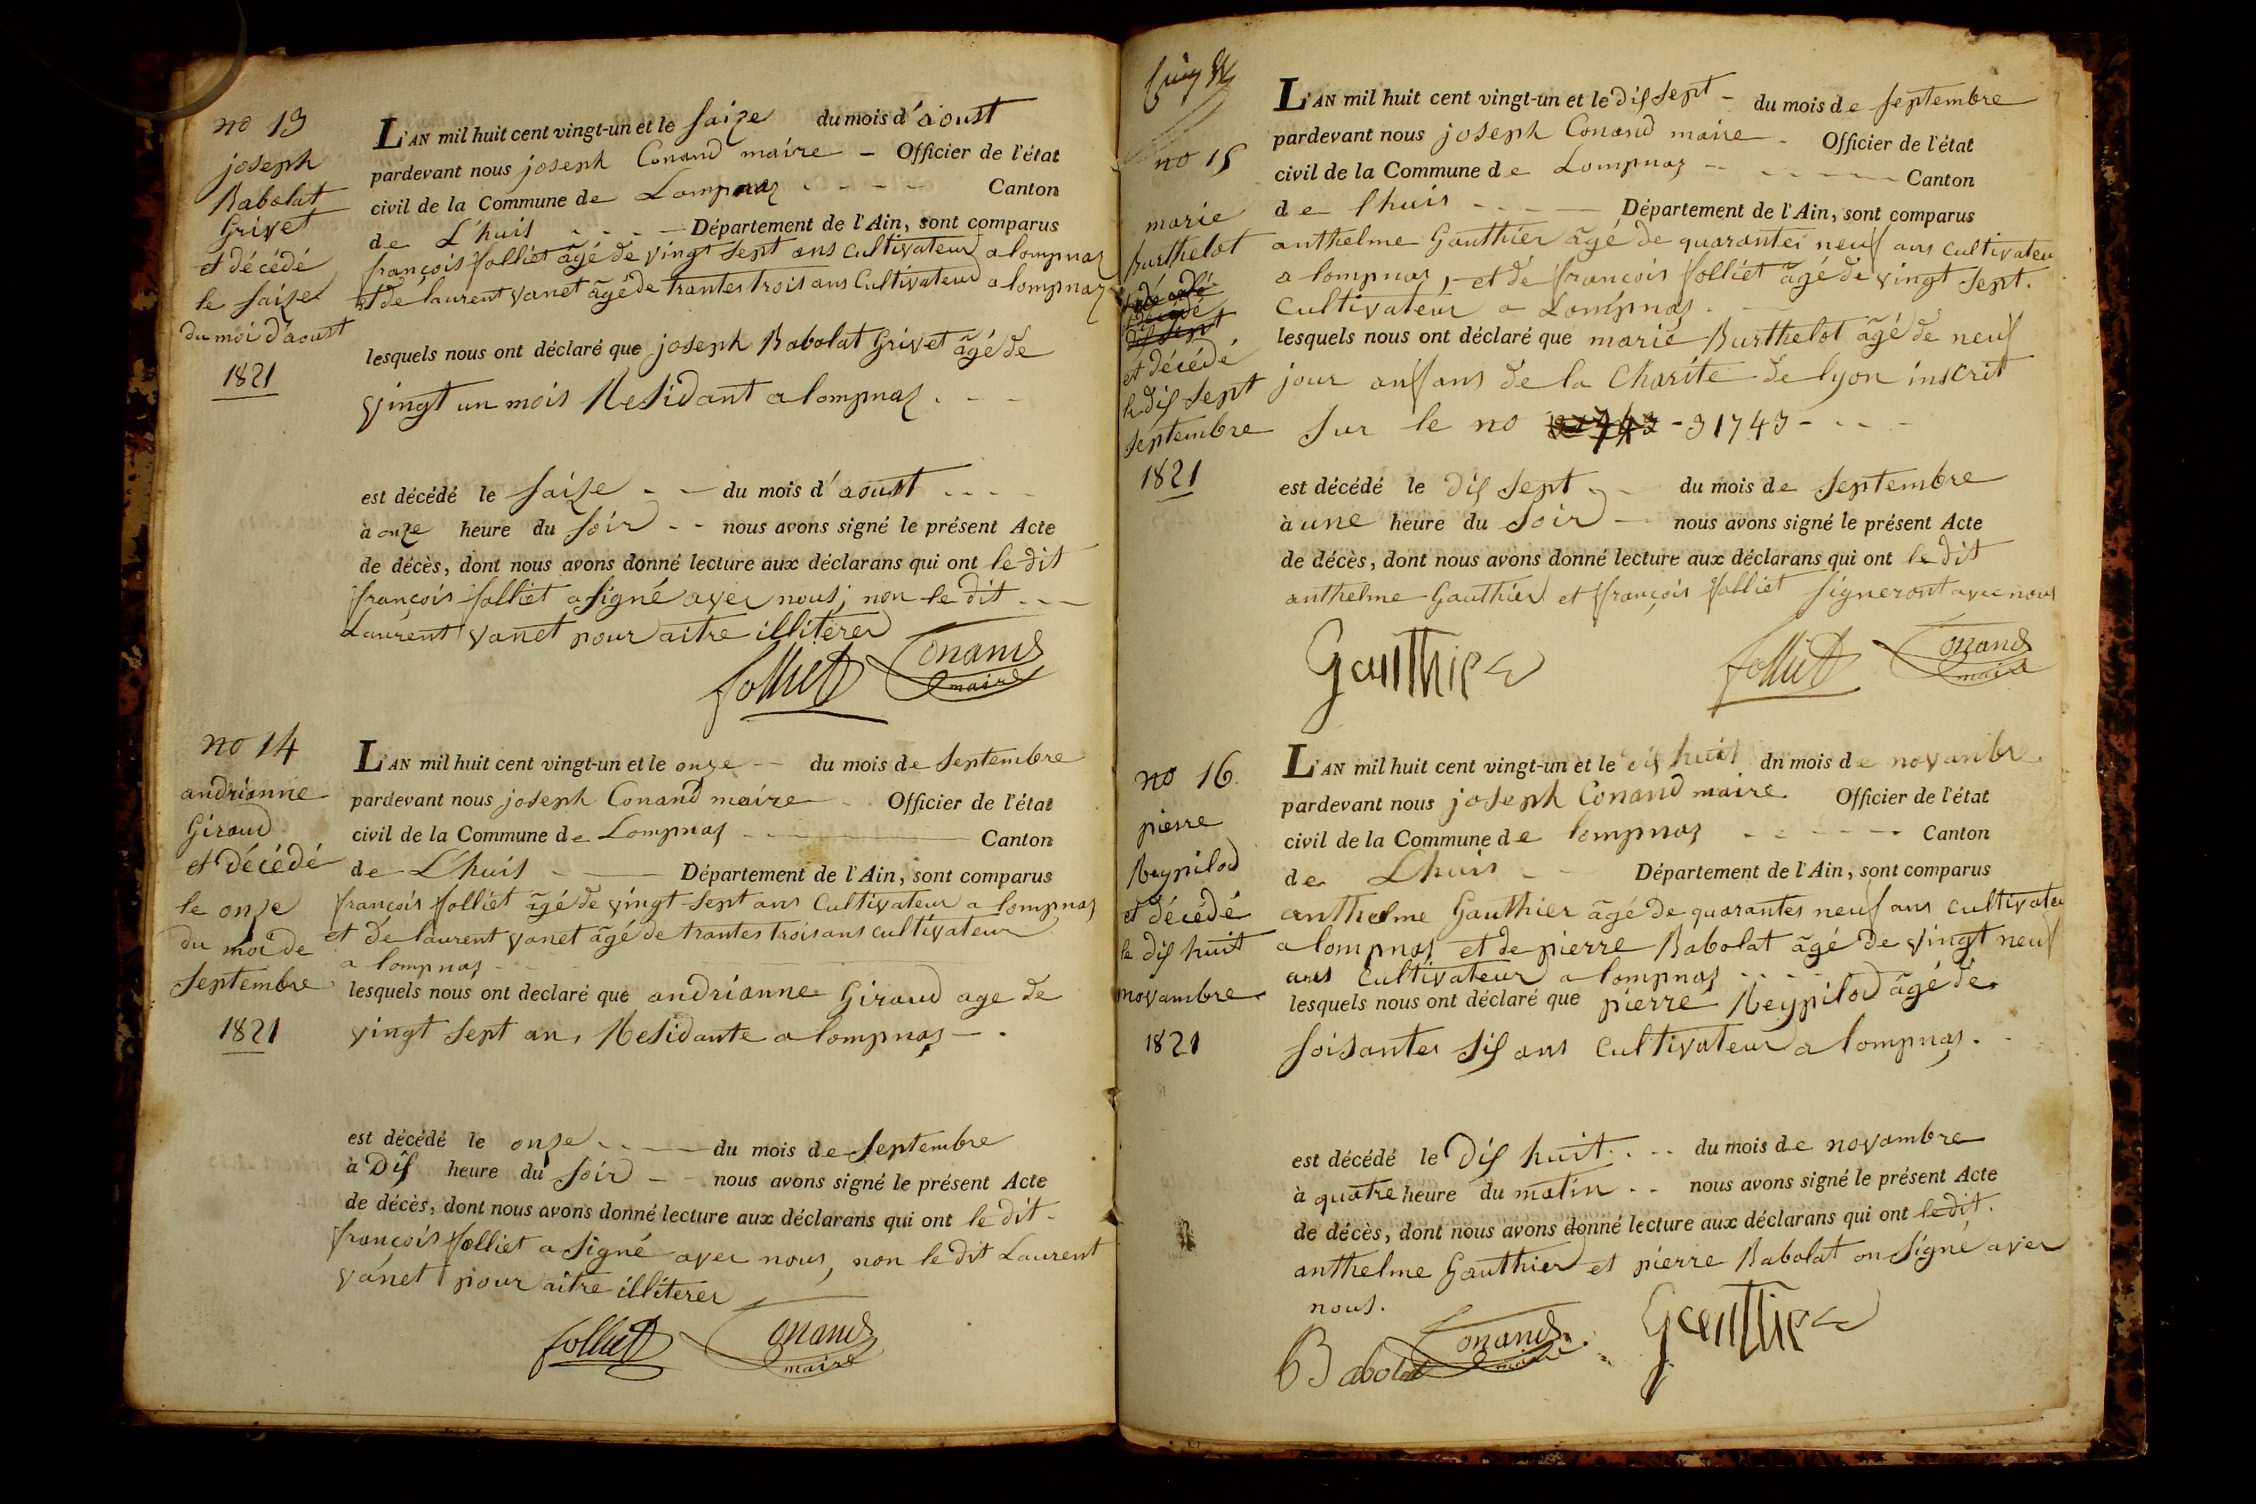 no 13
joseph
Babolat
Grivet
et décédé
le saize
du moi d'aoust
1821
L'AN mil huit cent vingt-un et le saize du mois d'aoust
pardevant nous joseph Conand maire - Officier de l'état
civil de la Commune de Lompnaz - - - - Canton
de L'huis - - - - Département de l'Ain, sont comparus
françois folliet âgé de vingt sept ans cultivateur a lompnaz
et de laurent vanet âgé de trantes trois ans Cultivateur a lompnaz
lesquels nous ont déclaré que joseph Babolat Grivet âgé de
vingt un mois Residant a lompnaz . - -
est décédé le saize - - du mois d'aoust - - - -
à onze heure du soir - - nous avons signé le présent Acte
de décès, dont nous avons donné lecture aux déclarans qui ont le dit
françois folliet a signé avec nous, non le dit - - -
Laurent vanet pour aitre illiterer
folliet Conand
maire
no 14
andrianne
Giraud
et décédé
le onze
du moi de
septembre
1821
L'AN mil huit cent vingt-un et le onze - - du mois de septembre
pardevant nous joseph Conand maire - Officier de l'état
civil de la Commune de Lompnaz - - - Canton
de L'huis - - Département de l'Ain, sont comparus
françois folliet âgé de vingt sept ans Cultivateur a lompnaz
et de laurent vanet âgé de trantes trois ans cultivateur
a lompnaz - -
lesquels nous ont declaré que andrianne Giraud age de
vingt sept an, Residante a lompnaz - .
est décédé le onze - - - - du mois de septembre
à Dis heure du soir - - nous avons signé le présent Acte
de décès, dont nous avons donné lecture aux déclarans qui ont le dit -
françois folliet a signé avec nous, non le dit Laurent
vanet pour aitre illiterer
folliet Conand
maire
no 15
marie
Burthelot
et décédé
le dis sept
septembre
1821
L'AN mil huit cent vingt-un et le dis sept - du mois de septembre
pardevant nous joseph Conand maire - Officier de l'état
civil de la Commune de Lompnaz - - - - - Canton
de lhuis - - - - Département de l'Ain, sont comparus
anthelme Gauthier âgé de quarantes neuf ans cultivateu
a lompnas, - et de françois folliet âgé de vingt sept.
Cultivateur a Lompnas . -
lesquels nous ont déclaré que marie Burthelot âgé de neuf
jour anfans de la Charite de lyon inscrit
sur le no - 31743 - - - -
est décédé le dis sept - - du mois de septembre
à une heure du soir - nous avons signé le présent Acte
de décès, dont nous avons donné lecture aux déclarans qui ont le dit
anthelme Gauthier et françois folliet signeront avec nous
Gauthier folliet Conand
maire
no 16.
pierre
Reypilod
et décédé
le dis huit
novambre
1821
L'AN mil huit cent vingt-un et le dis huit dn mois de novanbre
pardevant nous joseph Conand maire Officier de l'état
civil de la Commune de lompnaz - - - - - - Canton
de Lhuis - - Département de l'Ain, sont comparus
anthelme Gauthier âgé de quarantes neuf ans cultivateu
a lompnas et de pierre Babolat âgé de vingt neuf
ans Cultivateur a lompnas - - - -
lesquels nous ont déclaré que pierre Reypilod âgé de
soisantes sis ans Cultivateur a lompnas. -
est décédé le Dis huit. . - - du mois de novambre
à quatre heure du matin - - nous avons signé le présent Acte
de décès, dont nous avons donné lecture aux déclarans qui ont ledit.
anthelme Gauthier et pierre Babolat on signe avec
nous.
Babolat Conand Gauthier
maire